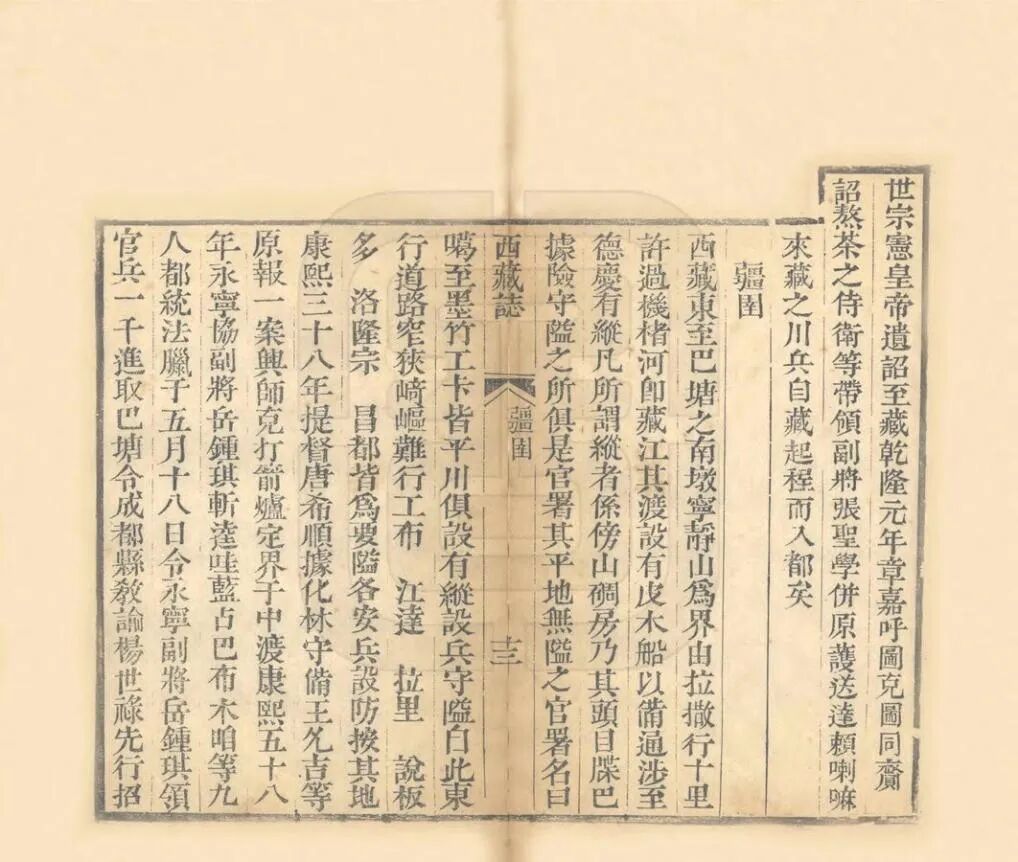 世宗憲皇帝遺詔至藏乾隆元年章嘉呼圖克圖同賫
詔熬茶之侍衛等帶領副將張聖學併原護送達賴喇嘛
來藏之川兵自藏起程而入都矣
疆圉
西藏東至巴塘之南墩寧靜山爲界由拉撒行十里
許過機楮河卽藏江其渡設有皮木船以備通涉至
德慶有縱凡所謂縱者係傍山碉房乃其頭目牒巴
據險守隘之所俱是官署其平地無隘之官署名曰
西藏誌
疆圉
十三
噶至墨竹工卡皆平川俱設有縱設兵守隘自此東
行道路窄狹崎嶇難行工布 江達 拉里 說板
多 洛隆宗 昌都皆爲要隘各安兵設防按其地
康熙三十八年提督唐希順據化林守備王允吉等
原報一案興師克打箭爐定界于中渡康熙五十八
年永寧協副將岳鍾琪斬達哇藍占巴布木咱等九
人都統法臘于五月十八日令永寧副將岳鍾琪領
官兵一千進取巴塘令成都縣敎諭楊世祿先行招